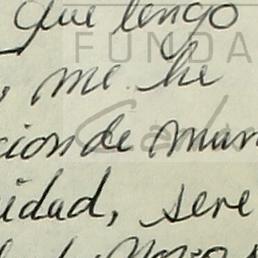 que tengo
FUNDA
, me he
cion de man
idad, sere